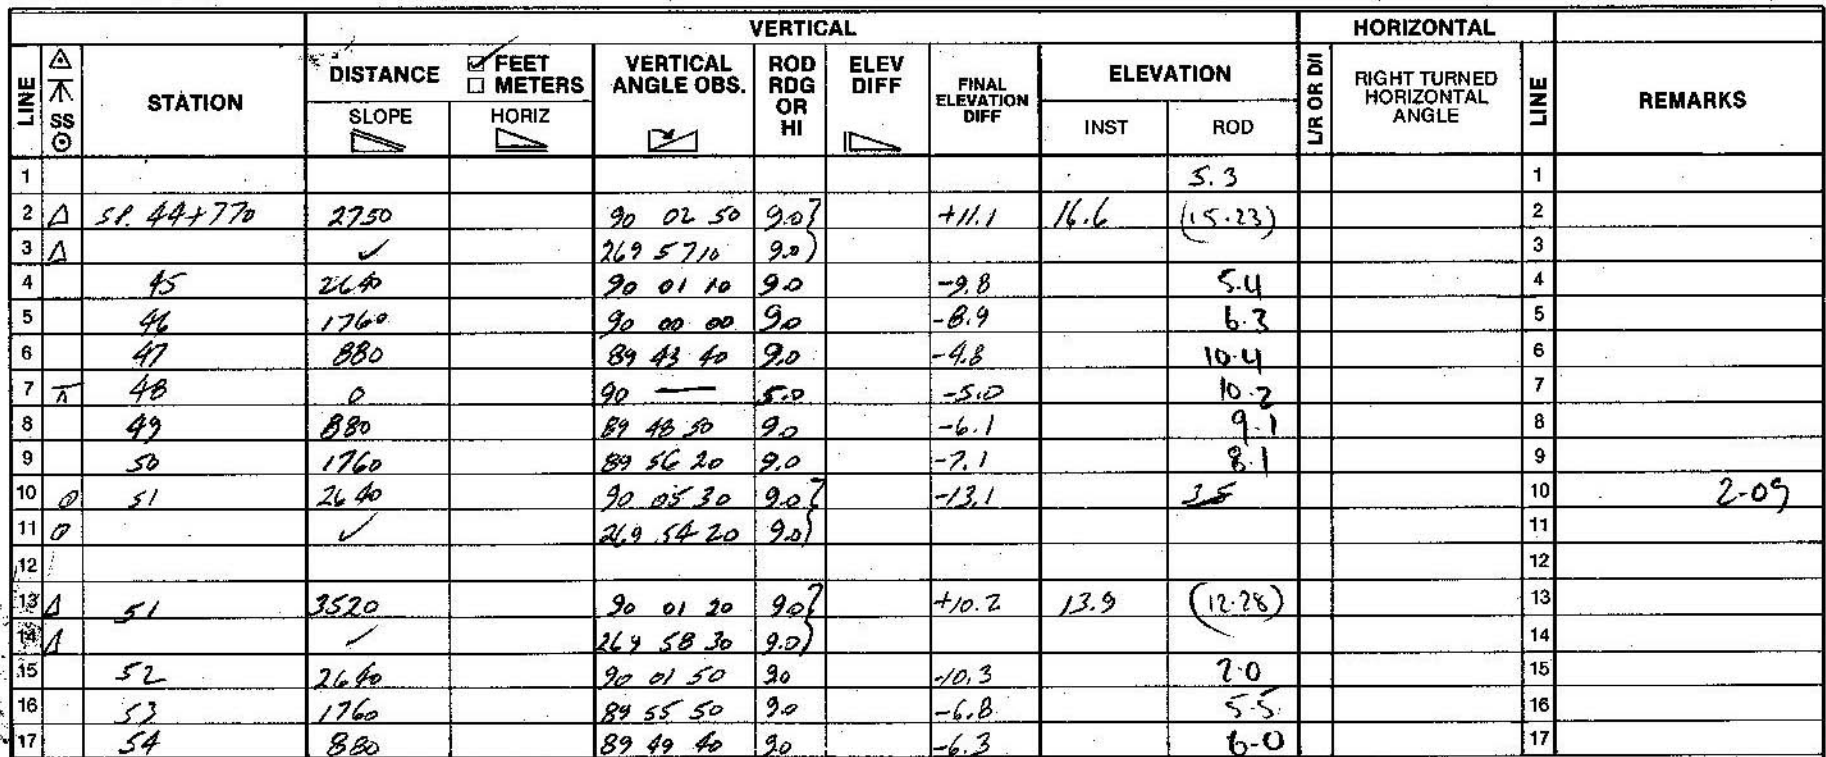 VERTICAL HORIZONTAL
LINE SS STATION DISTANCE FEET METERS SLOPE HORIZ VERTICAL ANGLE OBS. ROD RDG OR HI ELEV DIFF FINAL ELEVATION DIFF ELEVATION INST ROD L/R OR D/I RIGHT TURNED HORIZONTAL ANGLE LINE REMARKS
1 5.3 1
2 Δ S.P. 44+770 2750 90 02 50 9.0 +11.1 16.6 (15.23) 2
3 Δ ✓ 269 57 10 9.0 3
4 45 2640 90 01 10 9.0 -9.8 5.4 4
5 46 1760 90 00 00 9.0 -8.9 6.3 5
6 47 880 89 43 40 9.0 -4.8 10.4 6
7 48 0 90 — 5.0 -5.0 10.2 7
8 49 880 89 48 50 9.0 -6.1 9.1 8
9 50 1760 89 56 20 9.0 -7.1 8.1 9
10 51 2640 90 05 30 9.0 -13.1 10 2.09
11 ✓ 269 54 20 9.0 11
12 12
13 Δ 51 3520 90 01 20 9.0 +10.2 13.9 (12.28) 13
14 Δ ✓ 269 58 30 9.0 14
15 52 2640 90 01 50 90 -10.3 2.0 15
16 53 1760 89 55 50 90 -6.8 5.5 16
17 54 880 89 49 40 90 -6.3 6.0 17